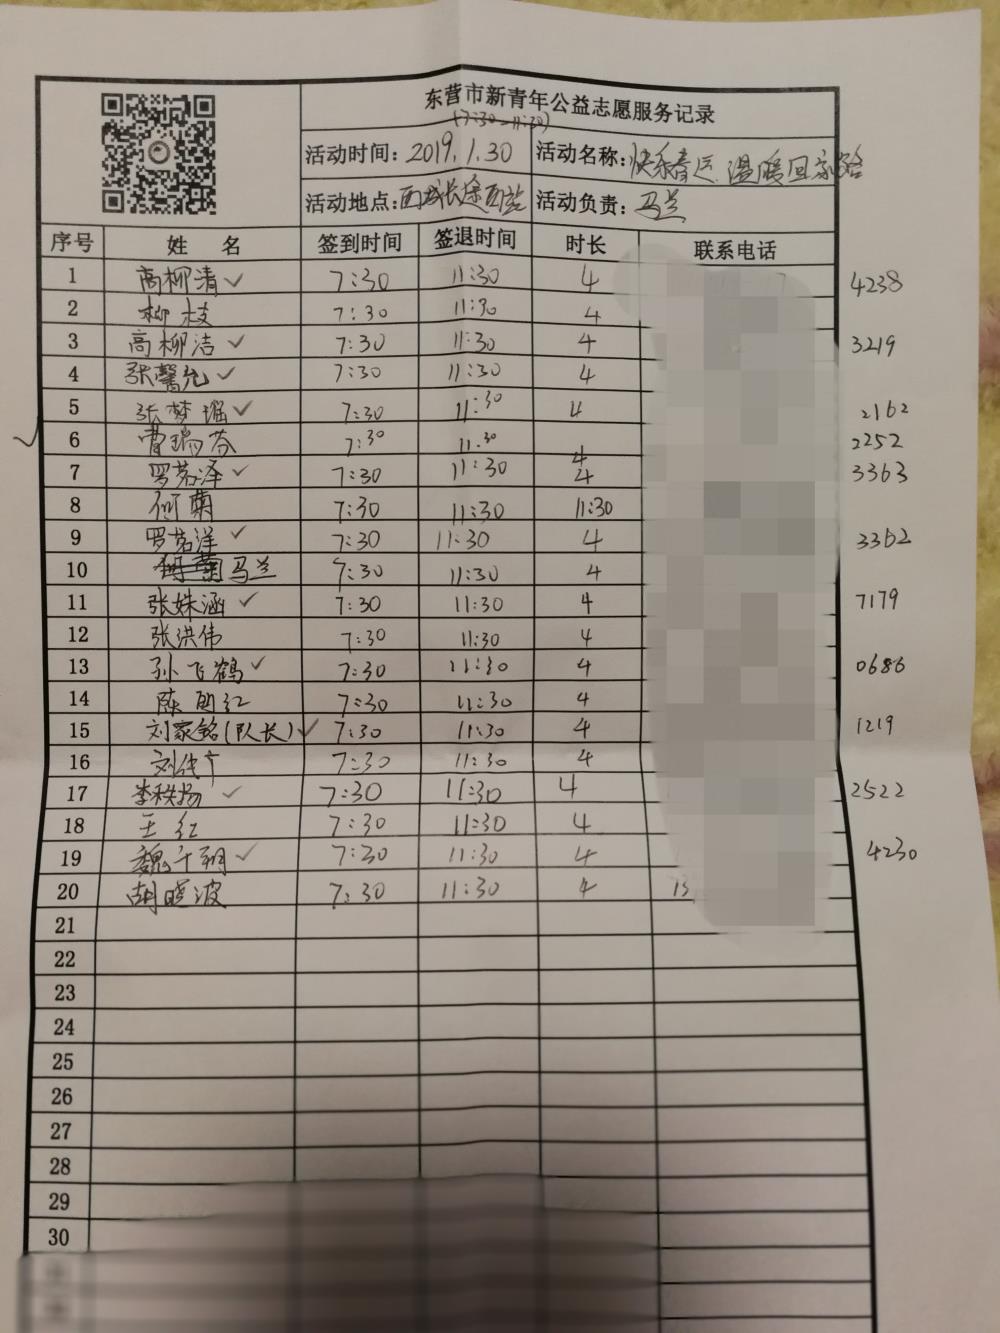 东营市新青年公益志愿服务记录
(7:30-11:30)
活动时间: 2019.1.30 活动名称: 快乐春运 温暖回家路
活动地点: 西城长途西站 活动负责: 马兰
序号 姓名 签到时间 签退时间 时长 联系电话
1 高柳清 ✓ 7:30 11:30 4 4238
2 柳枝 7:30 11:30 4
3 高柳洁 ✓ 7:30 11:30 4 3219
4 张馨允 ✓ 7:30 11:30 4
5 张梦瑶 ✓ 7:30 11:30 4 2162
6 曹瑞芬 7:30 11:30 4 2252
7 罗茗泽 ✓ 7:30 11:30 4 3363
8 何菊 7:30 11:30 11:30
9 罗茗洋 ✓ 7:30 11:30 4 3362
10 马兰 7:30 11:30 4
11 张姝涵 ✓ 7:30 11:30 4 7179
12 张洪伟 7:30 11:30 4
13 孙飞鹤 ✓ 7:30 11:30 4 0686
14 陈 红 7:30 11:30 4
15 刘家铭(队长) ✓ 7:30 11:30 4 1219
16 刘 7:30 11:30 4
17 李秩扬 ✓ 7:30 11:30 4 2522
18 王红 7:30 11:30 4
19 魏千翔 ✓ 7:30 11:30 4 4230
20 胡晓波 7:30 11:30 4 13
21
22
23
24
25
26
27
28
29
30